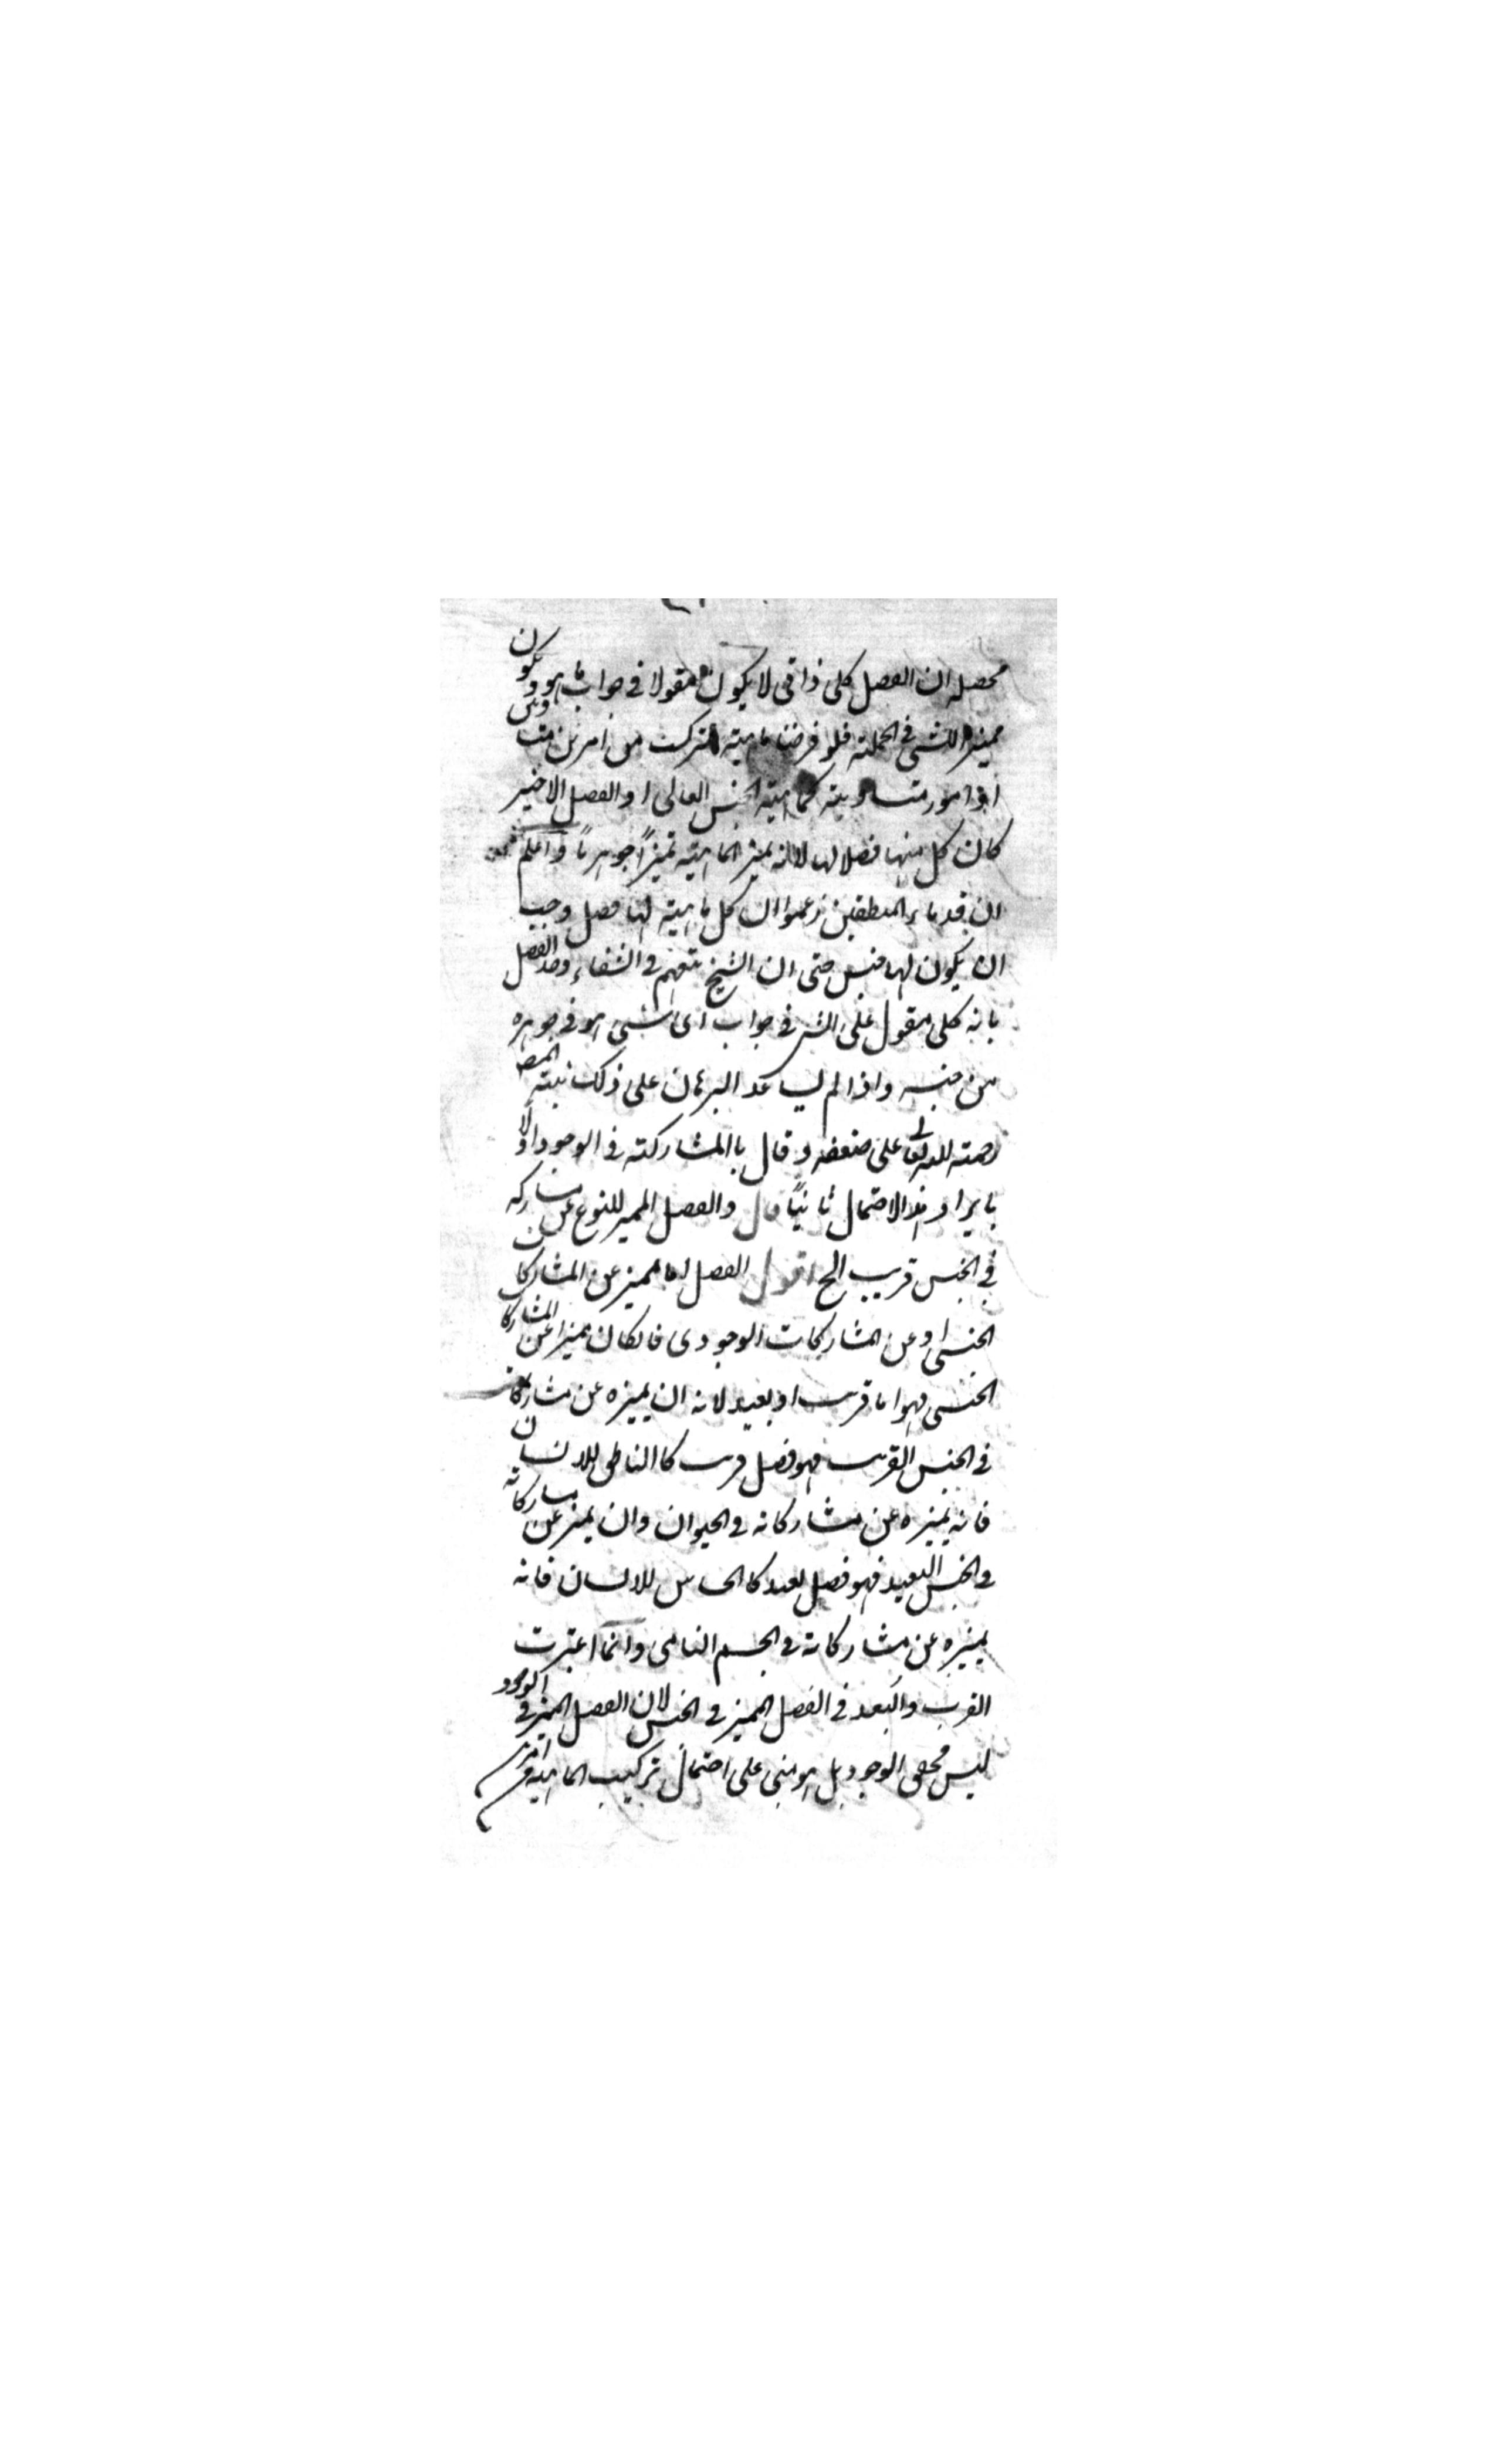 محصله ان الفصل كلى ذاتى لا يكون مقولا فى جواب ما هو ويكون
مميزا للشئ فى الجملة فلو فرضنا ماهية تركبت من امرين متساويين
او امور متساوية كماهية الجنس العالى او الفصل الاخير
كان كل منها فصلا لها لانه يميز الماهية تميزاً جوهرياً واعلم
ان قدماء المنطقين زعموا ان كل ماهية لها فصل وجب
ان يكون لها جنس حتى ان الشيخ تبعهم فى الشفاء وحد الفصل
بانه كلى مقول على الشئ فى جواب اى شئ هو فى جوهره
من جنسه واذا لم يساعد البرهان على ذلك نبه المص
رحمة الله تعالى على ضعفه وقال باالمشاركة فى الوجود اولا
بايراد هذا الاحتمال ثانياً قال والفصل المميز للنوع عن مشاركه
فى الجنس قريب الخ اقول الفصل اما مميز عن المشاركات
الجنسى او عن المشاركات الوجودى فان كان مميزا عن المشاركات
الجنسى فهو اما قريب او بعيد لانه ان يميزه عن مشاركاته
فى الجنس القريب فهو فصل قريب كا الناطق للانسان
فانه يميزه عن مشاركاته فى الحيوان وان يميز عن مشاركاته
فى الجنس البعيد فهو فصل بعيد كا الحساس للانسان فانه
يميزه عن مشاركاته فى الجسم النامى وانما اعتبرت
القرب والبعد فى الفصل المميز فى الجنس لان الفصل المميز فى الوجود
ليس محقق الوجود بل هو مبنى على احتمال تركيب الماهية من امرين